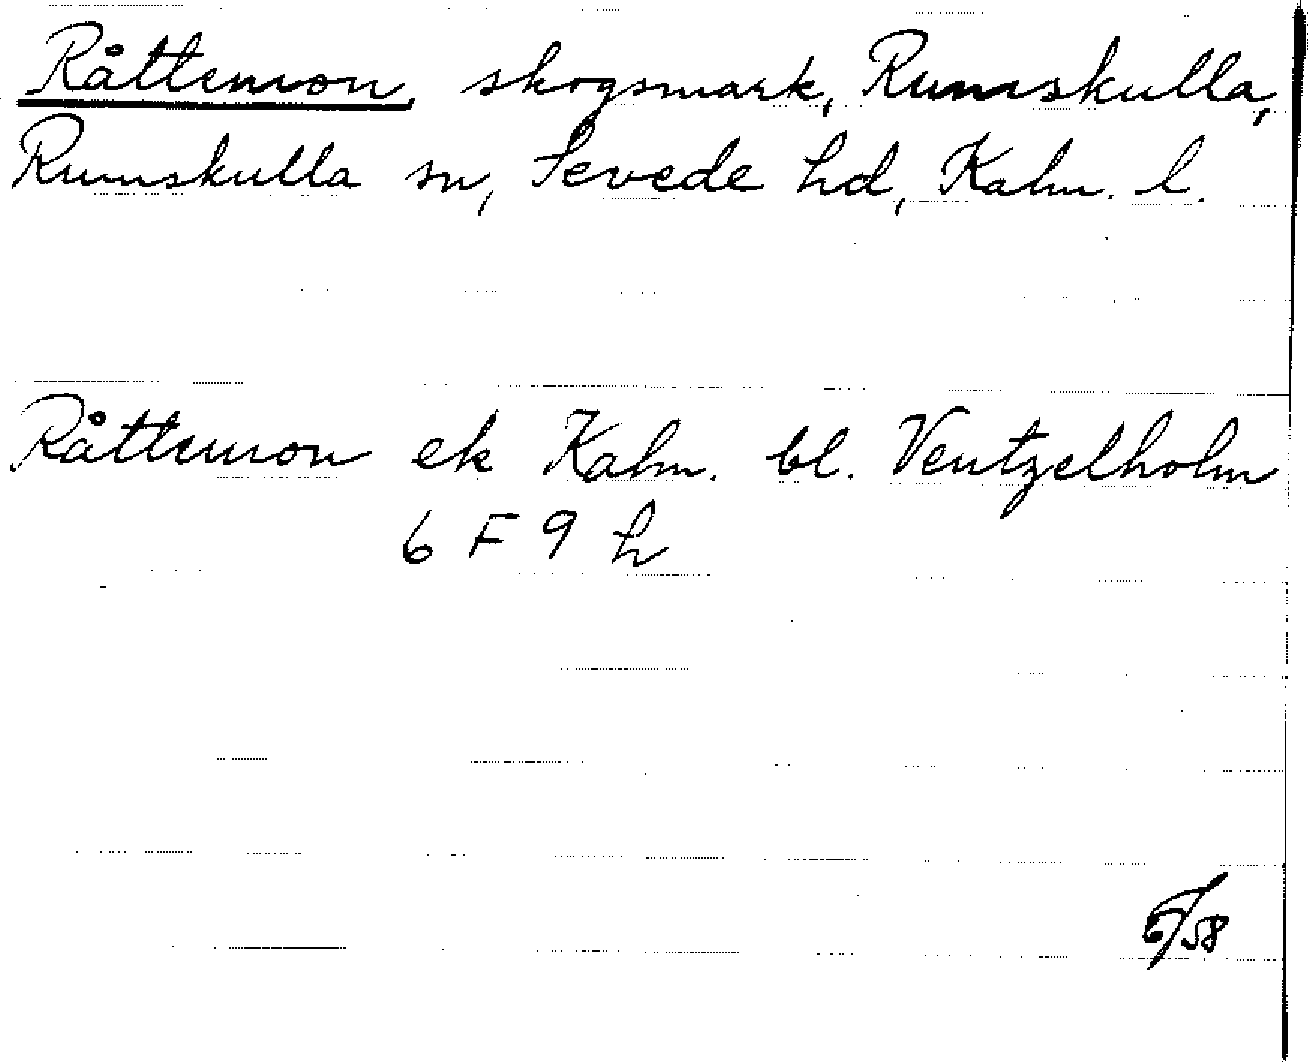 Råttemon, skogsmark, Rumskulla,
Rumskulla sn, Sevede hd, Kalm. l.
Råttemon ek Kalm. bl. Ventzelholm
6 F 9 h
6/58